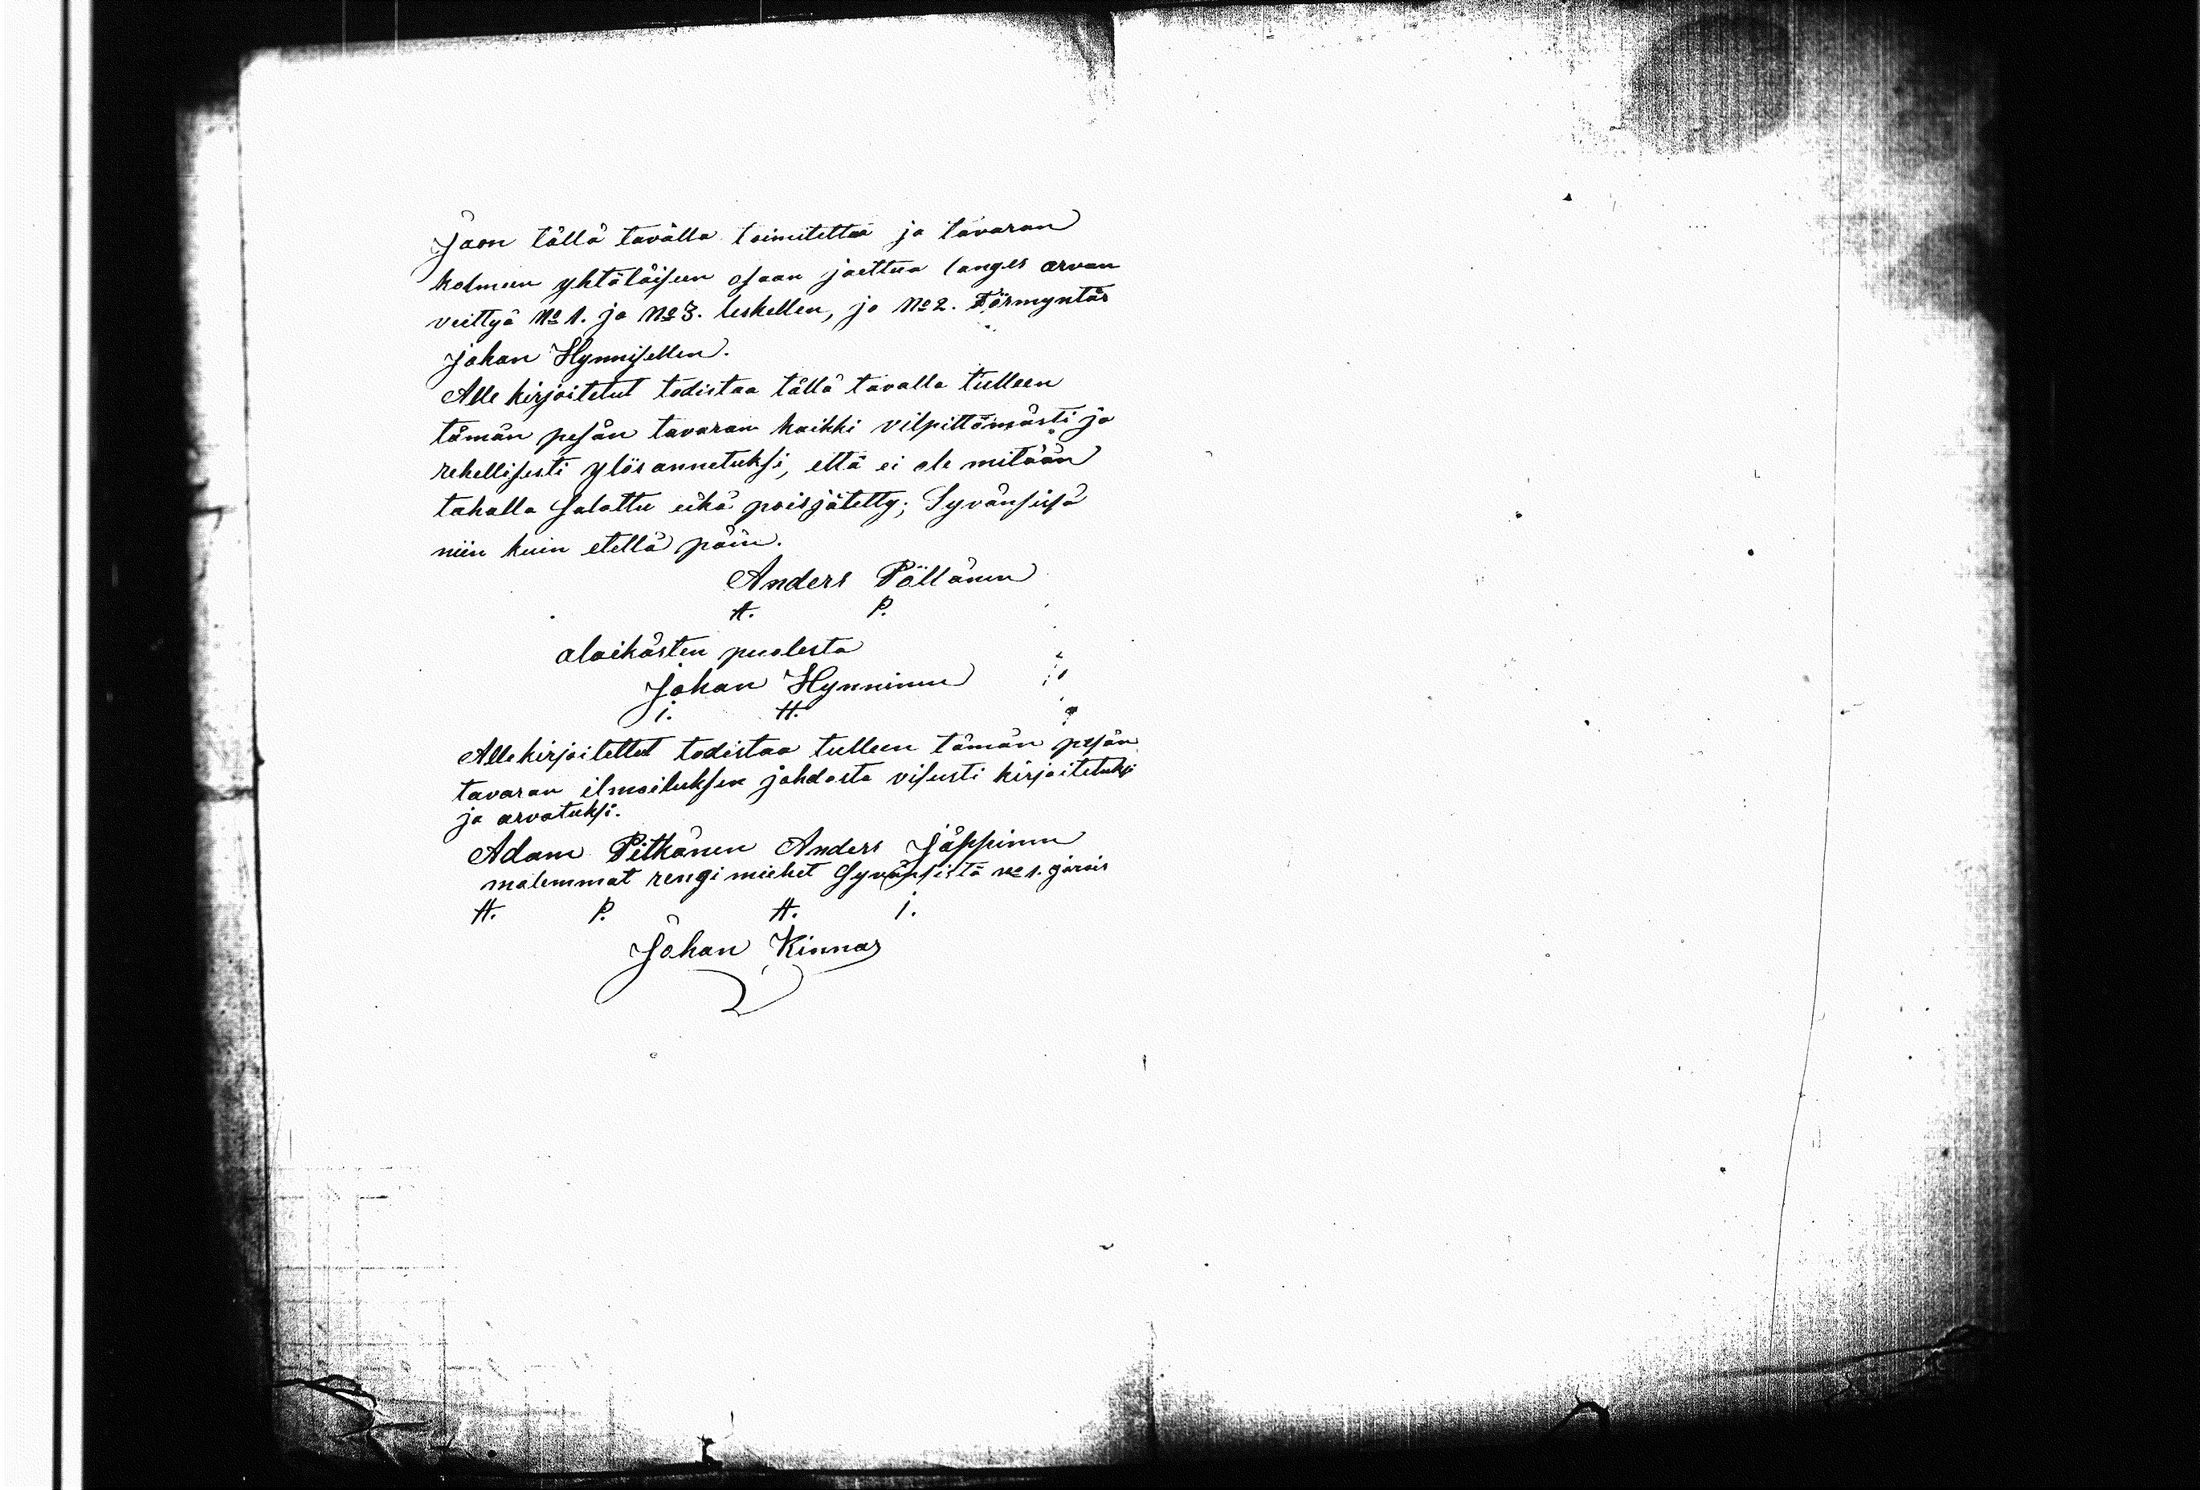 Jaon tällä tavälla toimitettua ja tavaran
kolmeen yhtäläiseen osaan jaettua langes arvan
veittyä No 1. ja No 3. leskellen, ja No 2.Förmyntär
Johan Hynnisellen.
Alle kirjoitetut todistaa tällä tavalla tulleen
tämän pesän tavaran kaikki vilpittömästi ja
rehellisesti ylös annetuksi, että ei ole mitään
tahalla salattu eikä poisjätetty; Syvänsisä
niin kuin etellä päin.
Anders Pöllänen
A. P.
alaikästen puolesta
Johan Hynninen
I. H.
Allekirjoitettut todistaa tulleen tämän pesän
tavaran ilmoituksen johdosta visusti kirjoitetuksi
ja arvatuksi.
Adam Pitkänen Anders Jäppinen
molemmat rengimiehet Syvänsistä No 1.
A. P. A. I.
Johan Kinnar